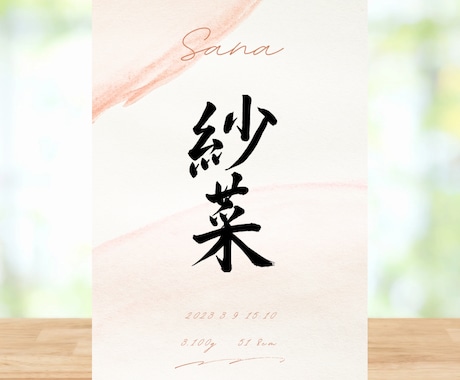 Sana
紗菜
2023.3.9 15:10
3.100g 51.8cm